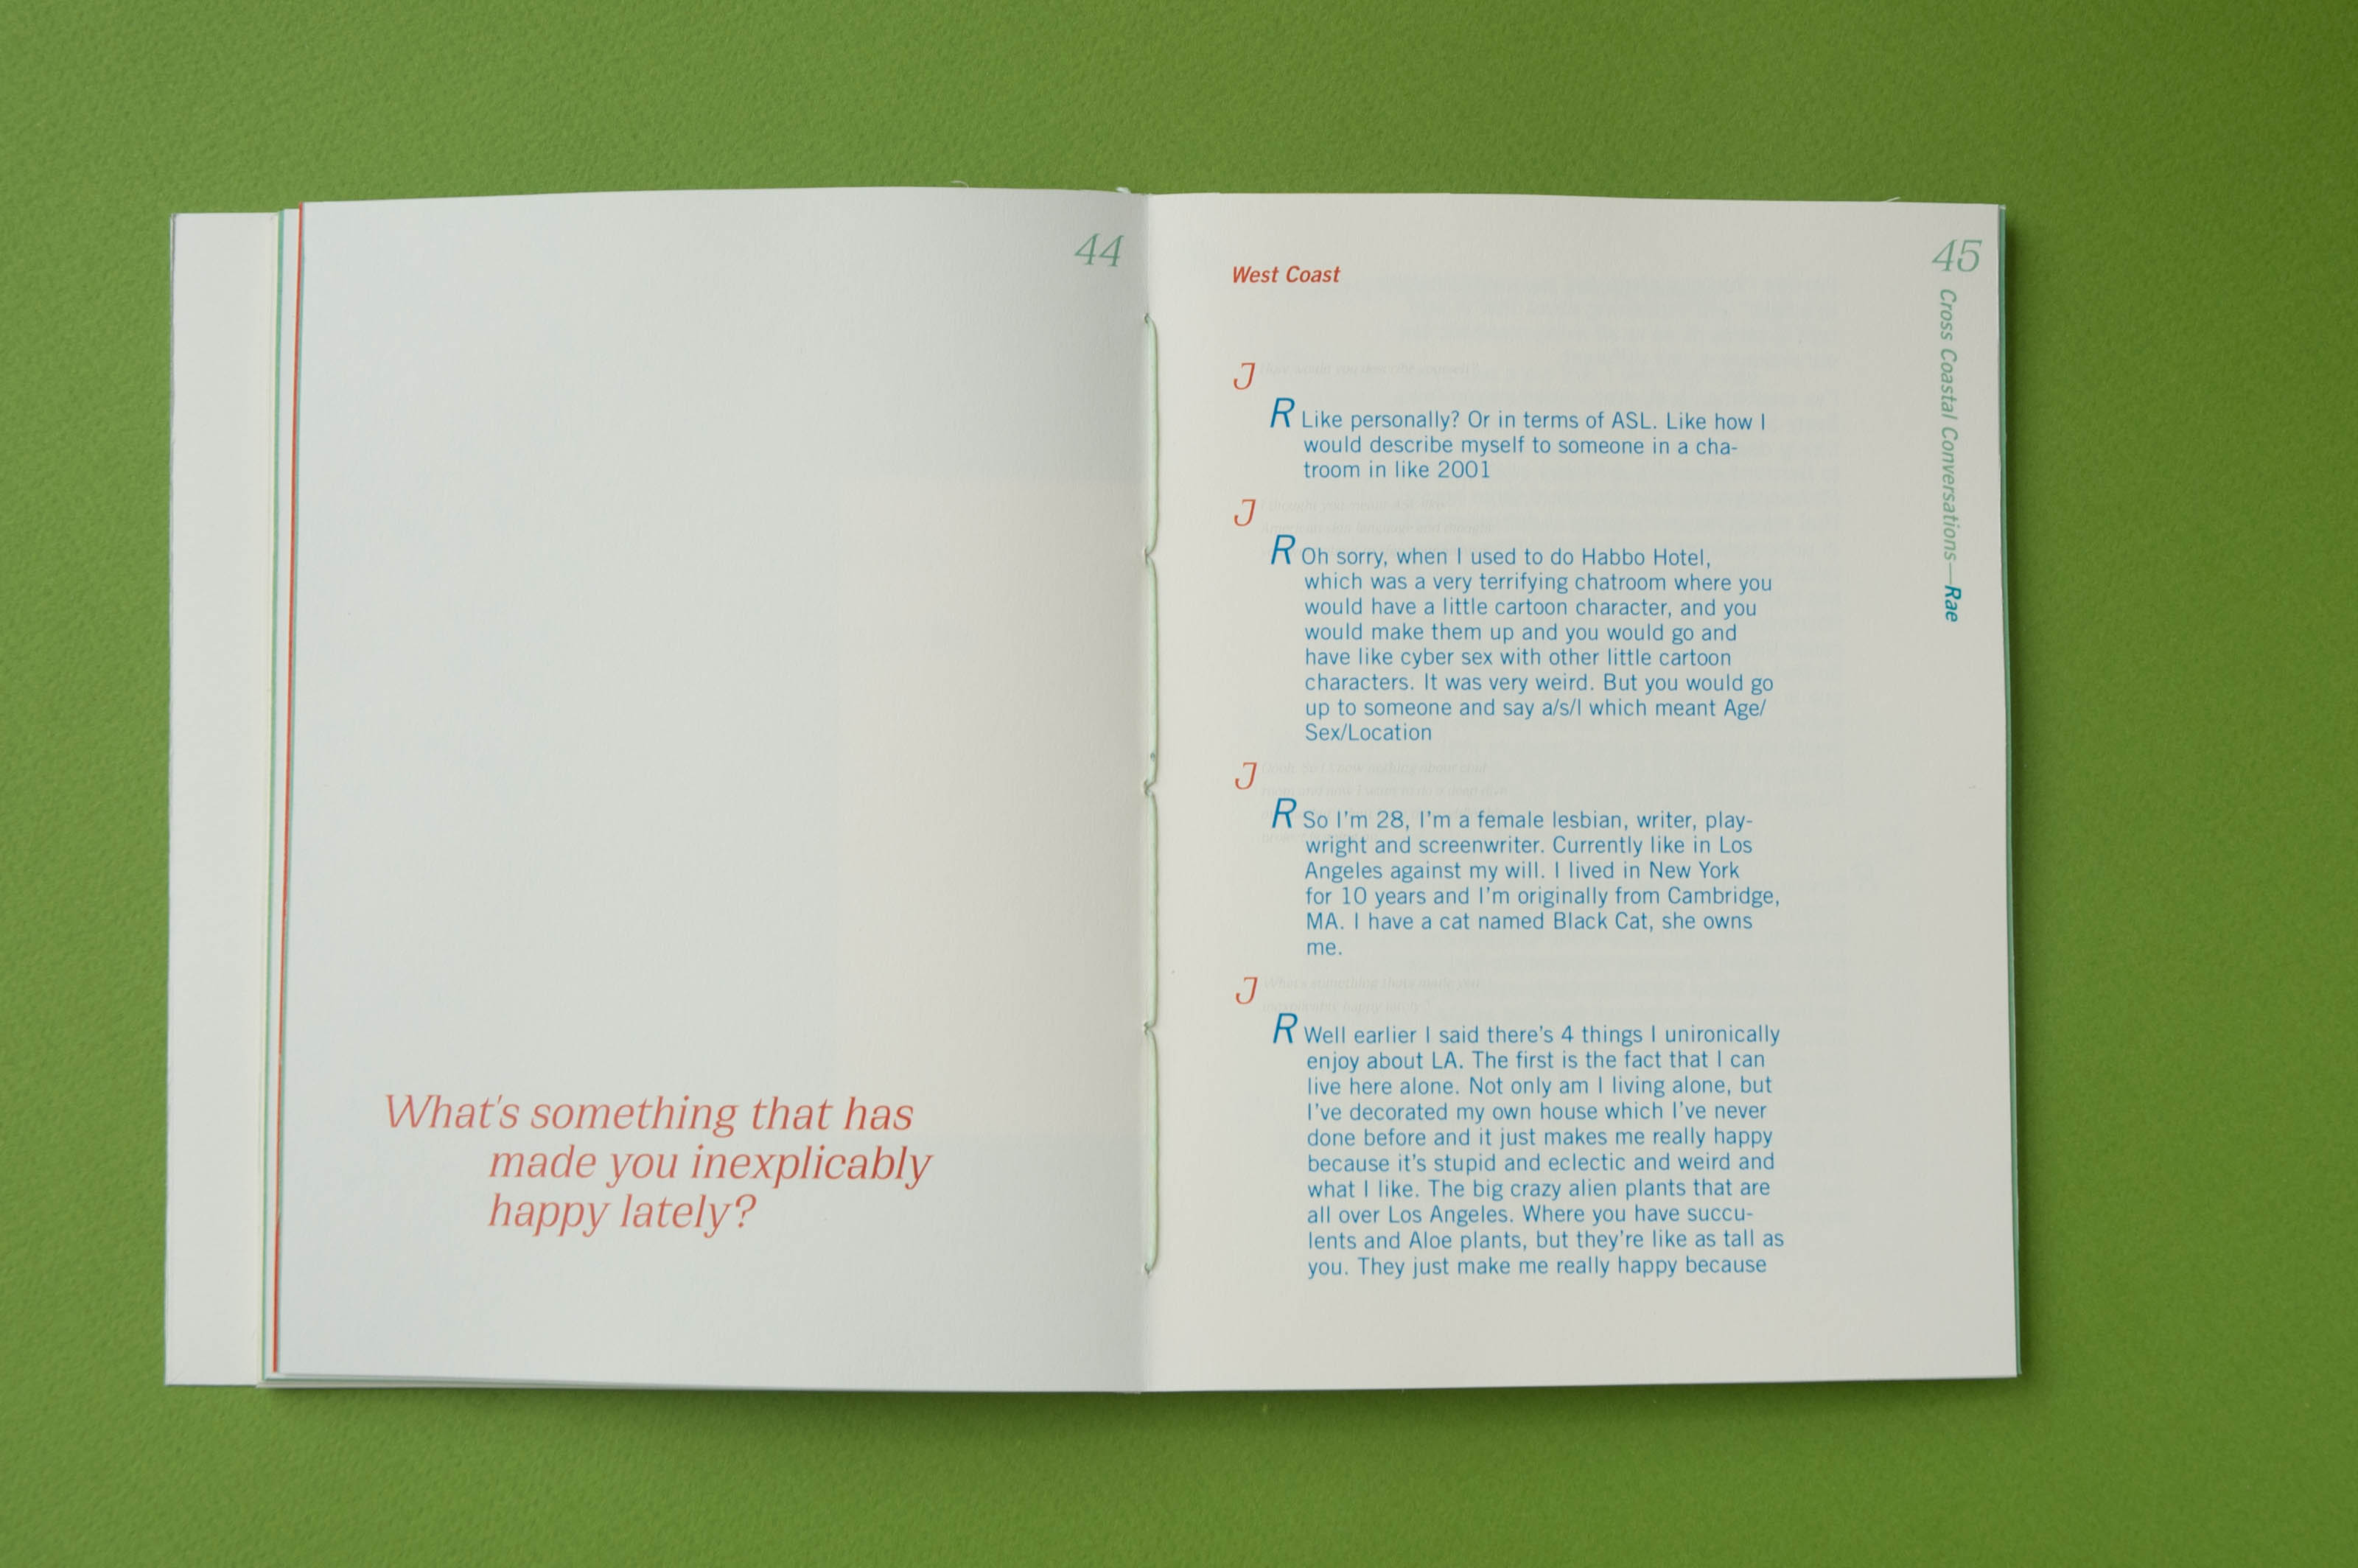 44
What's something that has
made you inexplicably
happy lately?
45
Cross Coastal Conversations—Rae
West Coast
J
R Like personally? Or in terms of ASL. Like how I
would describe myself to someone in a cha-
troom in like 2001
J
R Oh sorry, when I used to do Habbo Hotel,
which was a very terrifying chatroom where you
would have a little cartoon character, and you
would make them up and you would go and
have like cyber sex with other little cartoon
characters. It was very weird. But you would go
up to someone and say a/s/l which meant Age/
Sex/Location
J
R So I'm 28, I'm a female lesbian, writer, play-
wright and screenwriter. Currently like in Los
Angeles against my will. I lived in New York
for 10 years and I'm originally from Cambridge,
MA. I have a cat named Black Cat, she owns
me.
J What's something that's made you
inexplicably happy lately?
R Well earlier I said there's 4 things I unironically
enjoy about LA. The first is the fact that I can
live here alone. Not only am I living alone, but
I've decorated my own house which I've never
done before and it just makes me really happy
because it's stupid and eclectic and weird and
what I like. The big crazy alien plants that are
all over Los Angeles. Where you have succu-
lents and Aloe plants, but they're like as tall as
you. They just make me really happy because